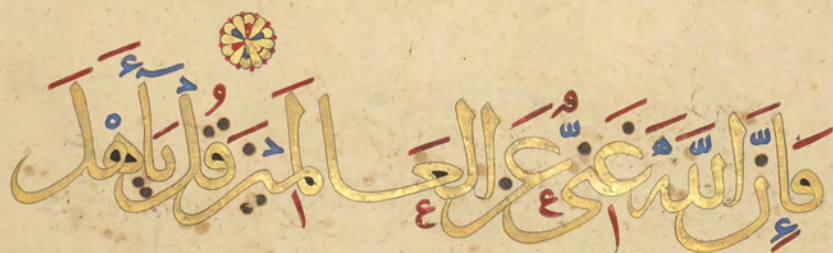 فَإِنَّ اللَّهَ غَنِيٌّ عَنِ الْعَالَمِينَ قُلْ يَا أَهْلَ